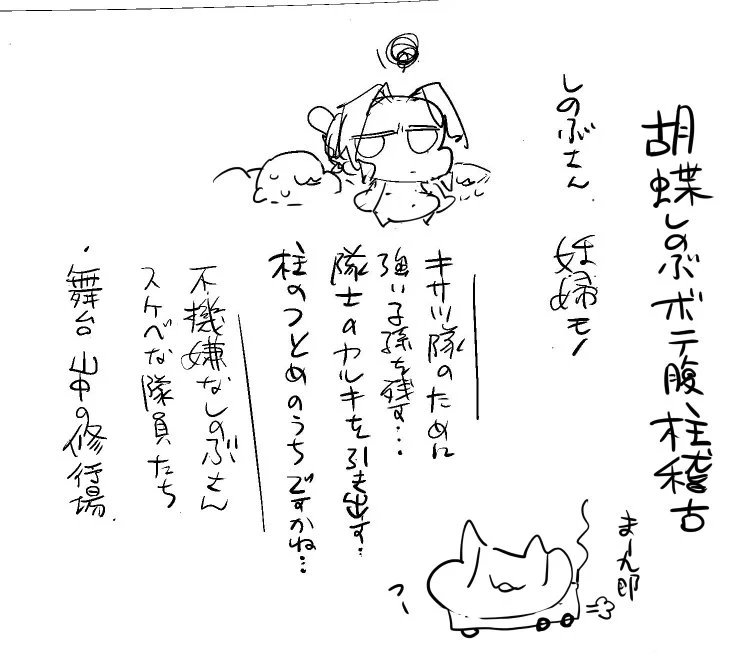 胡蝶しのぶボテ腹柱稽古
しのぶさん 妊婦モノ
キサツ隊のために
強い子孫を残す…
隊士のヤルキを引き出す…
柱のつとめのうちですかね…
不機嫌なしのぶさん
スケベな隊員たち
・舞台 山中の修行場
まー九郎
つー